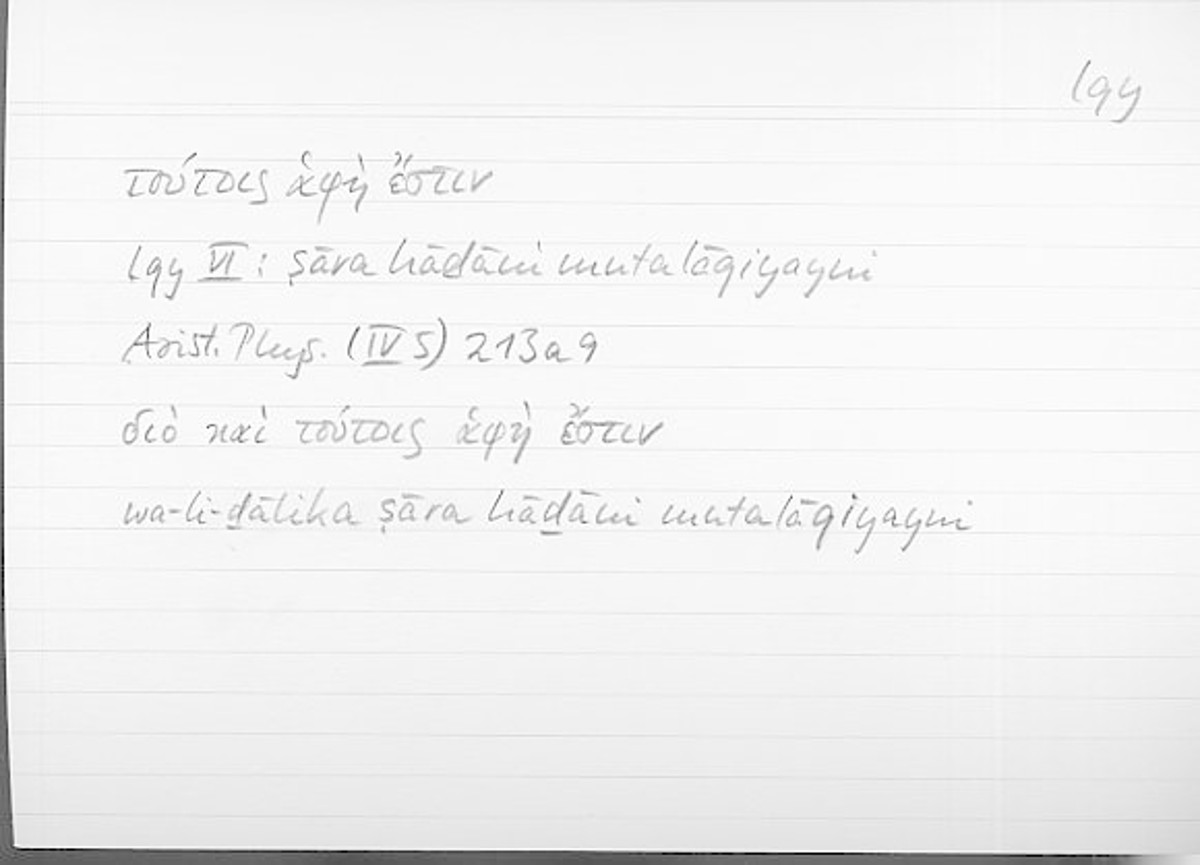 lqy
τούτοις ἁφὴ ἔστιν
lqy VI: ṣāra hāḏāni mutalāqiyayni
Arist. Phys. (IV 5) 213a9
διὸ καὶ τούτοις ἁφὴ ἔστιν
wa-li-ḏālika ṣāra hāḏāni mutalāqiyayni